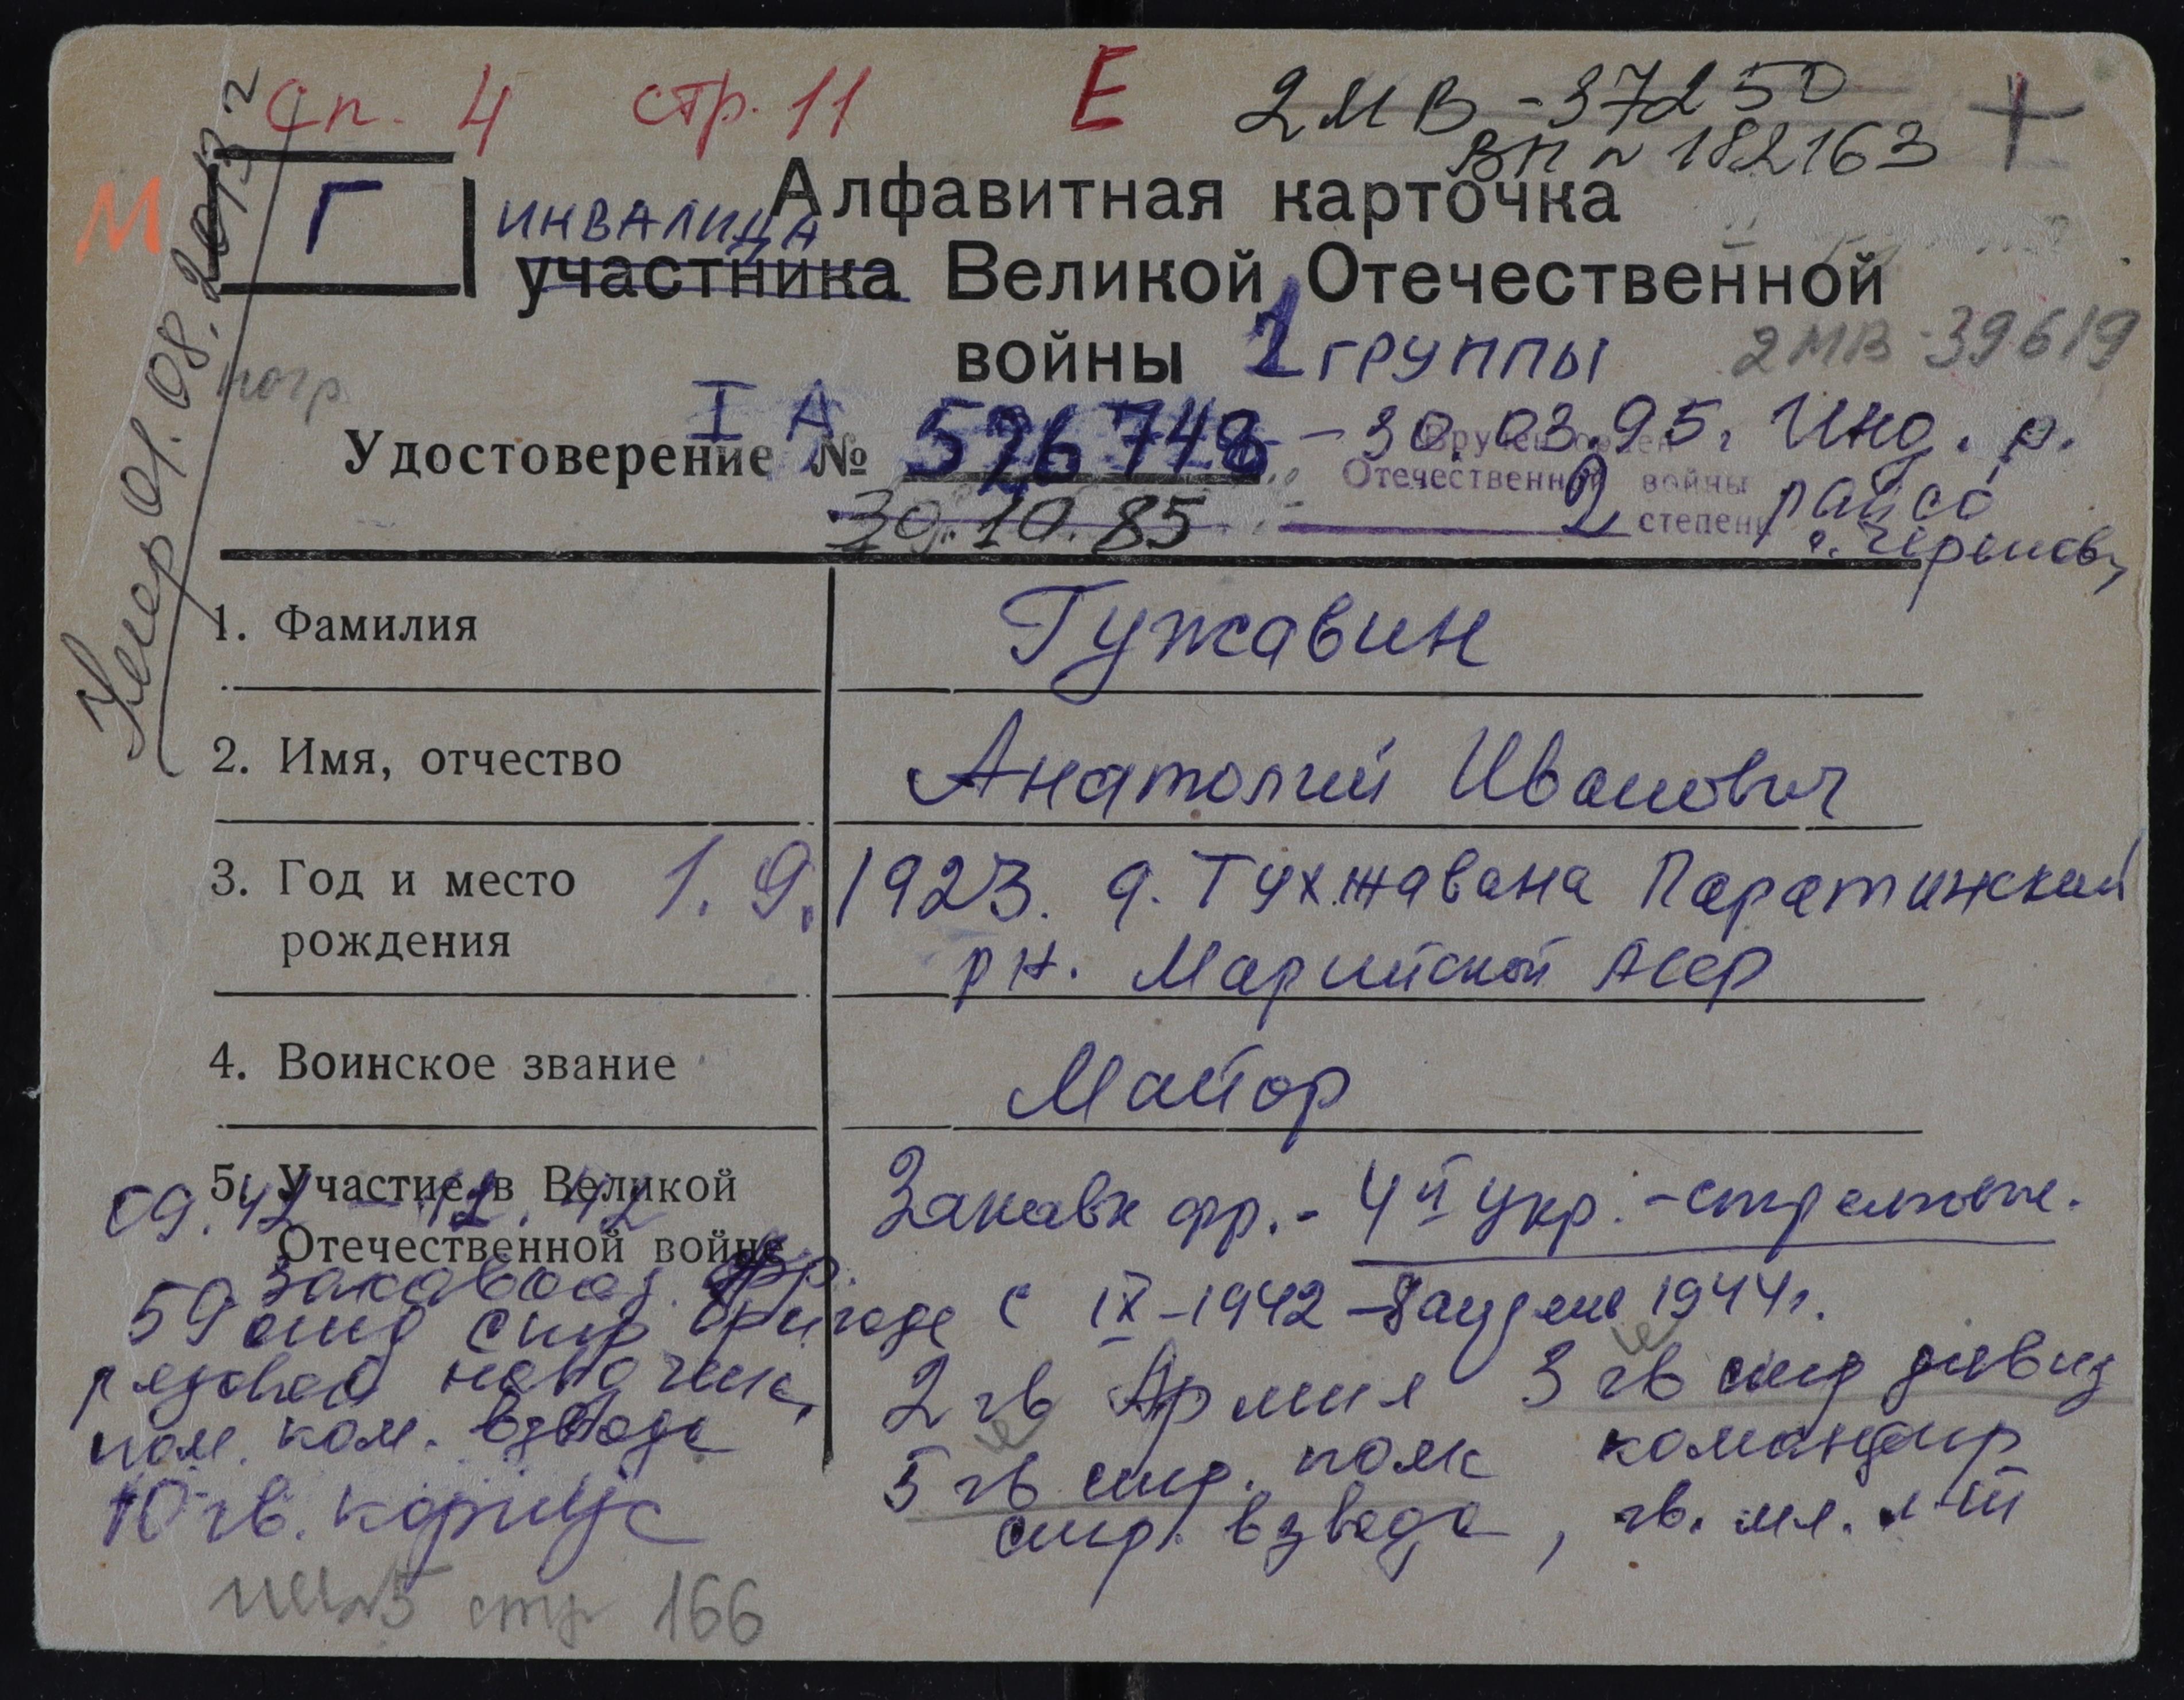 сп. 4 стр. 11 Е 2МВ-37250
ВП № 182163
М Г инвалида Алфавитная карточка
участника Великой Отечественной
войны 2 группы 2МВ-39619
погр.
Умер 01.08.2013 г
I А
Удостоверение № 526748 - 30.03.95 г Инд. р.
Отечественной войны райсо
30.10.85 2 степени
1. Фамилия Гужавин
2. Имя, отчество Анатолий Иванович
3. Год и место 1.9. 1923. д. Тухжавана Паратинский
рождения рн. Марийской АССР
4. Воинское звание Майор
5. Участие в Великой Закавк фр. - 4й Укр. - стрелковые.
09.42 - 12.42
Отечественной войне
Закавказ. фр.
59 отд стр бригаде с IX-1942 - 8 апреля 1944 г.
рядовой наводчик, 2 гв Армия 3 гв стр дивиз
пом. ком. взвода 5 гв стр. полк командир
10 гв. корпус стр. взвода, гв. мл. л-т
стр 166